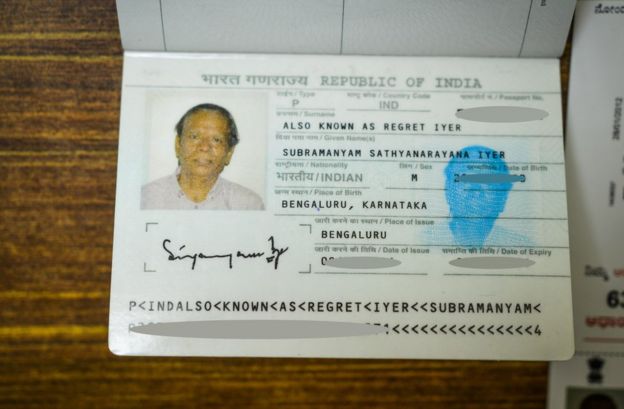 भारत गणराज्य REPUBLIC OF INDIA
टाईप / Type राष्ट्र कोड / Country Code पासपोर्ट नं. / Passport No.
P IND
उपनाम / Surname
ALSO KNOWN AS REGRET IYER
दिया गया नाम / Given Name(s)
SUBRAMANYAM SATHYANARAYANA IYER
राष्ट्रीयता / Nationality लिंग / Sex जन्मतिथि / Date of Birth
भारतीय / INDIAN M
जन्म स्थान / Place of Birth
BENGALURU, KARNATAKA
जारी करने का स्थान / Place of Issue
BENGALURU
जारी करने की तिथि / Date of Issue समाप्ति की तिथि / Date of Expiry
P<INDALSO<KNOWN<AS<REGRET<IYER<<SUBRAMANYAM<
<<<<<<<<<<<<<<<4
28/01/2012
ನಿಮ್ಮ